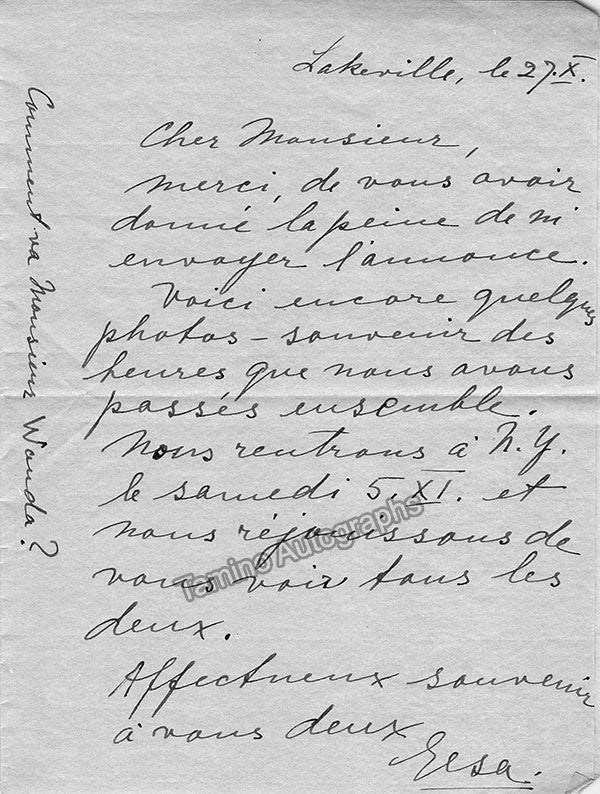 Lakeville, le 27.X.
Cher Monsieur,
merci, de vous avoir
donné la peine de m'
envoyer l'annonce.
Voici encore quelques
photos – souvenir des
heures que nous avons
passés ensemble.
Nous rentrons à N.Y.
le samedi 5.XI. et
nous réjouissons de
vous voir tous les
deux.
Affectueux souvenir
à vous deux
Elsa.
Comment va Monsieur Wanda?
Tamino Autographs